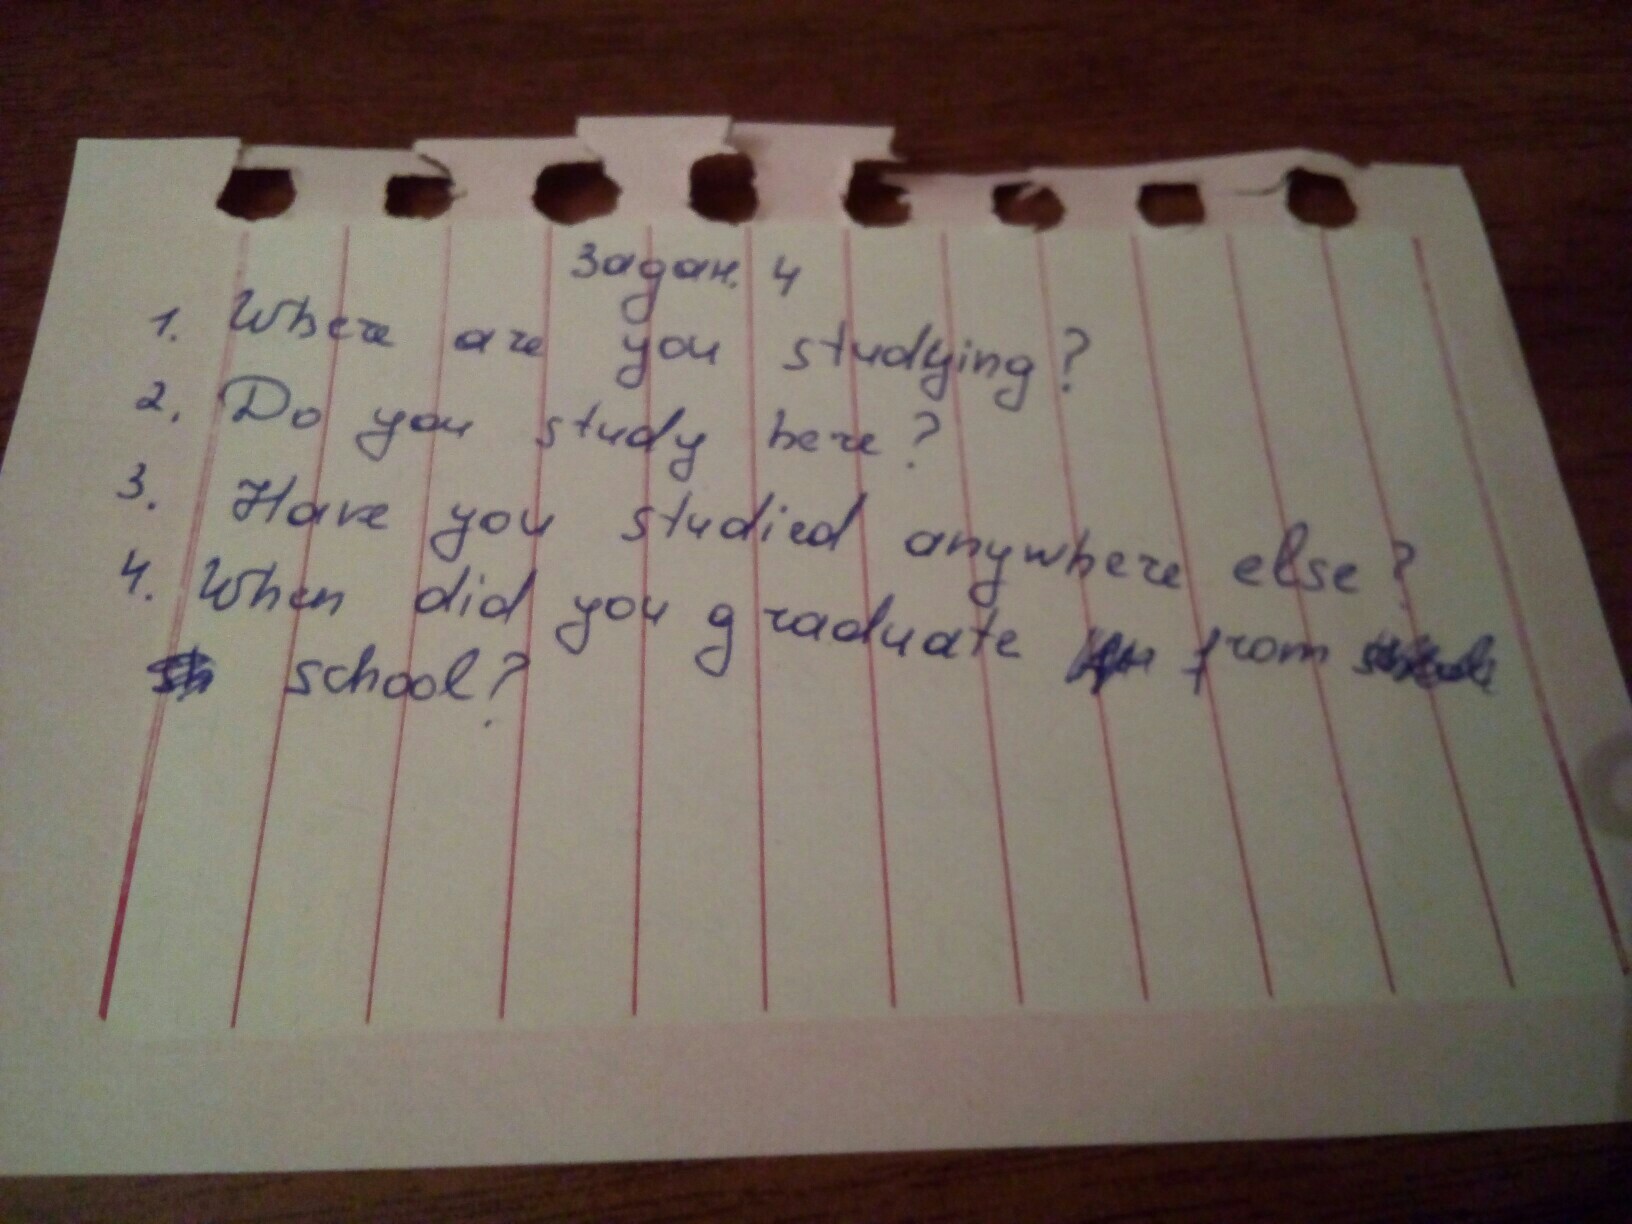 Задан. 4
1. Where are you studying?
2. Do you study here?
3. Have you studied anywhere else?
4. When did you graduate from
school?